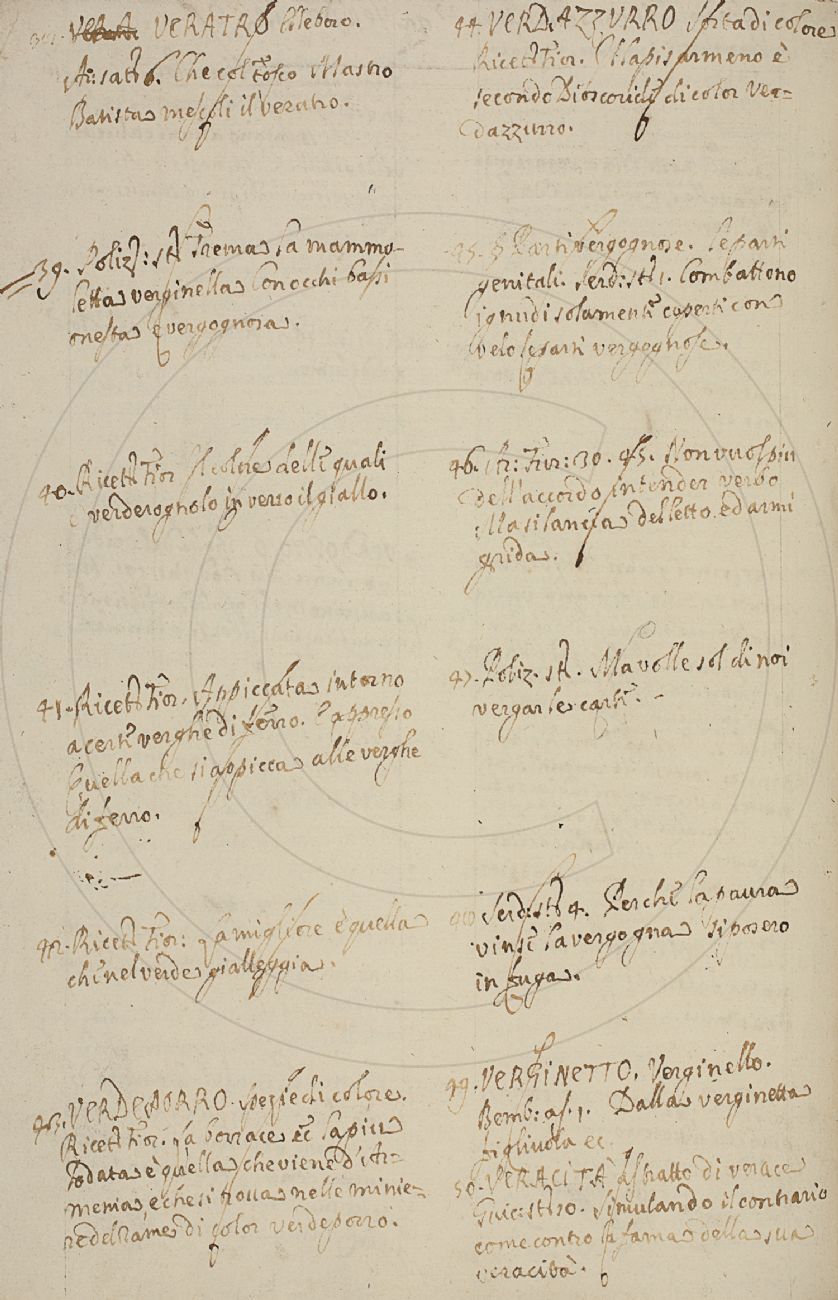 VERATRO Elleboro.
Ar: sat: 6. Che col tosco Mastro
Batista mescoli il veratro.
39. Poliz: st: Trema la mammo-
letta verginella Con occhi bassi
onesta e vergognosa.
40. Ricett. Fior. Il colore delle quali
è verderognolo in verso il giallo.
41. Ricett. Fior. Appiccata intorno
a certe verghe di ferro. E appresso
Quella che si appicca alle verghe
di ferro.
42. Ricett. Fior: La migliore è quella
che nel verde gialleggia.
43. VERDEPORRO. Spezie di colore.
Ricett. Fior. La borrace ec. la più
lodata è quella che viene d'Ar-
menia, e che si trova nelle minie-
re del rame di color verdeporro.
44. VERDAZZURRO Sorta di colore
Ricett. Fior. Il lapis armeno è
secondo Dioscoride di color ver-
dazzurro.
45. § Parti vergognose. Le parti
genitali. Serd: st: 1. Combattono
ignudi solamente coperti con
velo le parti vergognose.
46. Ar: Fur: 30. 45. Non vuol più
dell'accordo intender verbo
Ma si lancia del letto, ed armi
grida.
47. Poliz. st. Ma volle sol di noi
vergar le carte.
48. Serd: st: 4. Perchè la paura
vinse la vergogna si posero
in fuga.
49. VERGINETTO. Verginello.
Bemb: as. 1. Dalla verginetta
figliuola ec.
50. VERACITÀ astratto di verace
Guic: st: 10. Simulando il contrario
come contro la fama della sua
veracità.